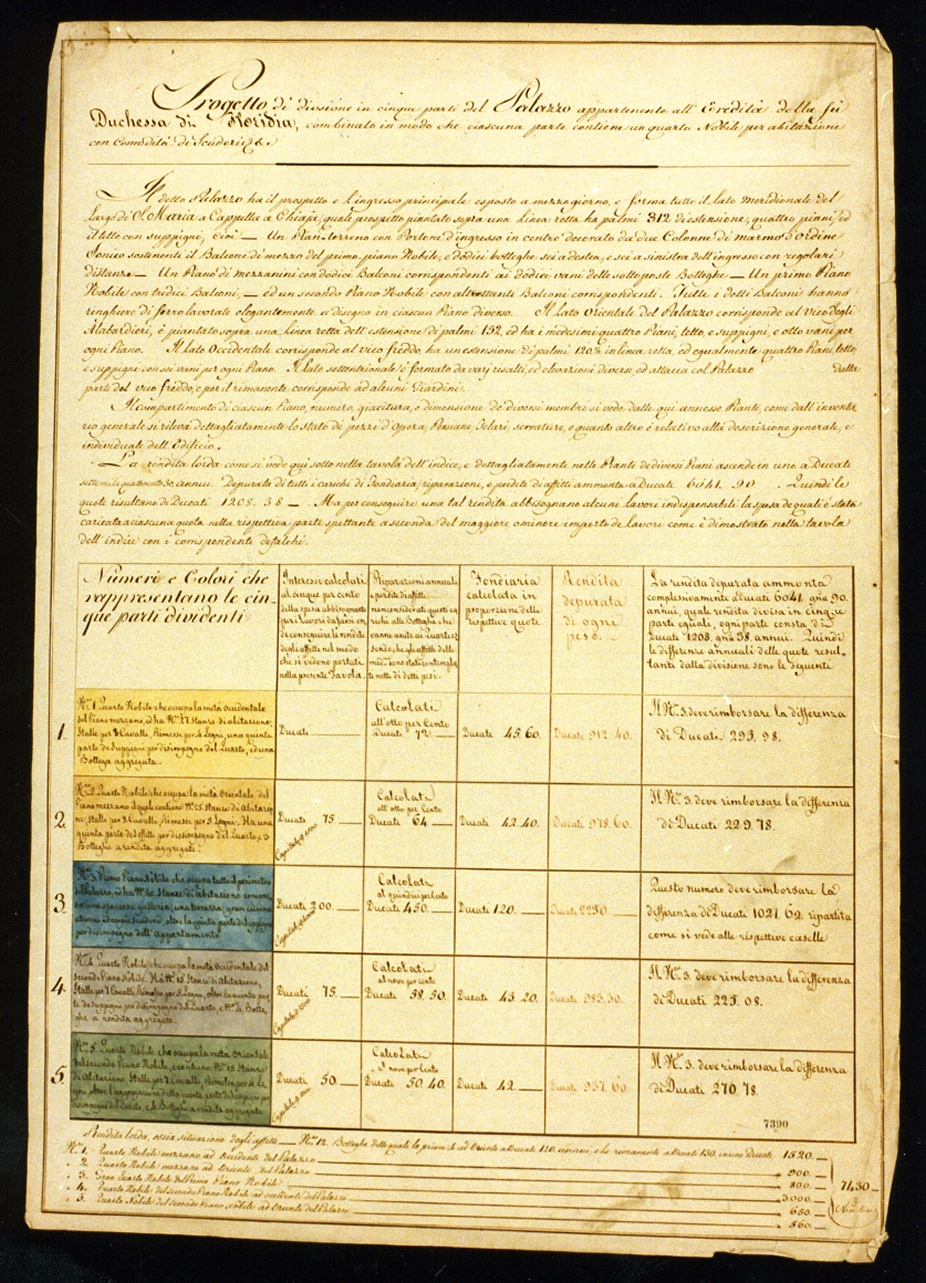 Progetto di divisione in cinque parti del Palazzo appartenente all' Eredità della fù
Duchessa di Floridia, combinato in modo che ciascuna parte contiene un quarto Nobile per abitazione
con comodità di Scuderie &c.
Il detto Palazzo ha il prospetto e l'ingresso principale esposto a mezzogiorno, e forma tutto il lato Meridionale del
Largo di S. Maria a Cappella a Chiaja, quale prospetto piantato sopra una linea retta ha palmi 312 di estensione, quattro piani, ed
il tetto con suppigni, cioè — Un Pian-terreno con Portone d'ingresso in centro decorato da due Colonne di marmo d'ordine
Jonico sostenenti il Balcone di mezzo del primo piano Nobile, e dodici botteghe sei a destra, e sei a sinistra dell'ingresso con regolari
distanze — Un Piano di mezzanini con dodici Balconi corrispondenti ai dodici vani delle sottoposte Botteghe — Un primo Piano
Nobile con tredici Balconi, — ed un secondo Piano Nobile con altrettanti Balconi corrispondenti. Tutti i detti Balconi hanno
ringhiere di ferro lavorate elegantemente, e disegno in ciascun Piano diverso. Il lato Orientale del Palazzo corrisponde al Vico degli
Alabardieri, è piantato sopra una linea retta dell'estensione di palmi 152, ed ha i medesimi quattro Piani, tetto, e suppigni, e otto vani per
ogni Piano. Il lato Occidentale corrisponde al vico freddo, ha un'estensione di palmi 120 in linea retta, ed egualmente quattro Piani, tetto
e suppigni con sei vani per ogni Piano. Il lato settentrionale è formato da varj risalti, ed elevazioni diverse, ed attacca col Palazzo dalla
parte del vico freddo, e per il rimanente corrisponde ad alcuni Giardini.
Il compartimento di ciascun Piano, numero, giacitura, e dimensione de' diversi membri si vede dalle qui annesse Piante, come dall'inventa
rio generale si rileva dettagliatamente lo stato di pezzi d'opera, Pannani, Telari, serrature, e quanto altro è relativo alla descrizione generale, e
individuale dell'Edificio.
La rendita lorda come si vede qui sotto nella tavola dell'indice, e dettagliatamente nelle Piante de' diversi Piani ascende in uno a Ducati
annui. Depurata di tutti i carichi di Fondiaria, riparazioni, e perdite di affitti ammonta a Ducati 6041. 90. Quindi le
quote risultano di Ducati 1208. 38 — Ma per conseguire una tal rendita abbisognano alcuni lavori indispensabili la spesa de' quali è stata
caricata a ciascuna quota nella rispettiva parte spettante a seconda del maggiore o minore importo de' lavori come è dimostrato nella tavola
dell'indice con i corrispondenti defalchi.
Numeri e Colori che
rappresentano le cin-
que parti dividenti
Interessi calcolati
al cinque per cento
della spesa abbisognante
per i Lavori da farsi on-
de conseguire le rendite
degli affitti nel modo
che si vedono portati
nella presente Tavola.
Riparazioni annuali
e perdite di affitti
non considerate questi ca-
richi alle Botteghe che
vanno unite ai Quarti es-
sendo, che gli affitti delle
med.e sono stati contempla-
te nette di detti pesi.
Fondiaria
calcolata in
proporzione delle
rispettive quote
Rendita
depurata
di ogni
peso.
La rendita depurata ammonta
complessivamente a Ducati 6041. gna 90.
annui, quale rendita divisa in cinque
parti eguali, ogni parte consta di
Ducati 1208. gna 38. annui. Quindi
le differenze annuali delle quote resul-
tanti dalla divisione sono le seguenti
1.
N.º 1. Quarto Nobile che occupa la metà occidentale
del Piano mezzano, ed ha N.º 17 Stanze di abitazione,
Stalle per 8 Cavalli, Rimesse per 4 Legni, una quinta
parte de' Suppigni per disimpegno del Quarto, ed una
Bottega aggregata.
Ducati
Calcolati
all'otto per Cento
Ducati 72.
Ducati 45. 60.
Ducati 912. 40.
Il N.º 3. deve rimborsare la differenza
di Ducati 295. 98.
2.
N.º 2. Quarto Nobile che occupa la metà Orientale del
Piano mezzano il quale contiene N.º 15. Stanze di Abitazio-
ne, stalle per 9. Cavalli, Rimesse per 5. Legni. Ha una
quinta parte de' soffitti per disimpegno del Quarto, e 3
Botteghe a rendita aggregate.
Ducati 75 —
Capitale d. 1500
Calcolati
all'otto per Cento
Ducati 64 —
Ducati 42. 40.
Ducati 978. 60.
Il N.º 3. deve rimborsare la differenza
di Ducati 229. 78.
3.
N.º 3. Primo Piano Nobile che occupa tutto il perimetro
del Palazzo, ed ha N.º 40. Stanze di abitazione compre-
sa una spaziosa galleria, una terrazza, gran cucina
attorno ed ampie Scuderie, oltre la quinta parte de' suppigni
per disimpegno dell'appartamento
Ducati 200. —
Capitale d. 4000
Calcolati
al quindici per cento
Ducati 450. —
Ducati 120. —
Ducati 2230.
Questo numero deve rimborsare la
differenza di Ducati 1021. 62. ripartita
come si vede alle rispettive caselle
4.
N.º 4. Quarto Nobile che occupa la metà occidentale del
secondo Piano Nobile. Ha N.º 15 Stanze di Abitazione,
Stalle per 7. Cavalli, Rimesse per 5. Legni, oltre la quinta par-
te de' suppigni per disimpegno del Quarto, e N.º 4. Botte-
ghe a rendita aggregate.
Ducati 75. —
Capitale d. 1500
Calcolati
al nove per cento
Ducati 58. 50.
Ducati 43. 20.
Ducati 983. 30.
Il N.º 3. deve rimborsare la differenza
di Ducati 225. 08.
5.
N.º 5. Quarto Nobile che occupa la metà Orientale
del secondo Piano Nobile, e contiene N.º 15 Stanze
di Abitazione, Stalle per 7. Cavalli, Rimesse per 4. Le-
gni, oltre l'aggregazione della quinta parte de' suppigni per
disimpegno del Quarto, e 4. Botteghe a rendita aggregate
Ducati 50. —
Capitale d. 1000
Calcolati
al nove per cento
Ducati 50. 40.
Ducati 42. —
Ducati 937. 60.
Il N.º 3. deve rimborsare la differenza
di Ducati 270. 78.
7390
Rendita lorda, ossia situazione degli affitti — N.º 12. Botteghe delle quali le prime ad Oriente a Ducati 120. cada una, che rimanenti a Ducati 130. in uno Ducati 1520 —
N.º 1. Quarto Nobile mezzano ad Occidente del Palazzo — 900 —
" 2. Quarto Nobile mezzano ad Oriente del Palazzo — 800. —
" 3. Gran Quarto Nobile del Primo Piano Nobile — 3000. —
" 4. Quarto Nobile del secondo Piano Nobile ad occidente del Palazzo — 650. —
" 5. Quarto Nobile del secondo Piano Nobile ad Oriente del Palazzo — 560. —
7430 —